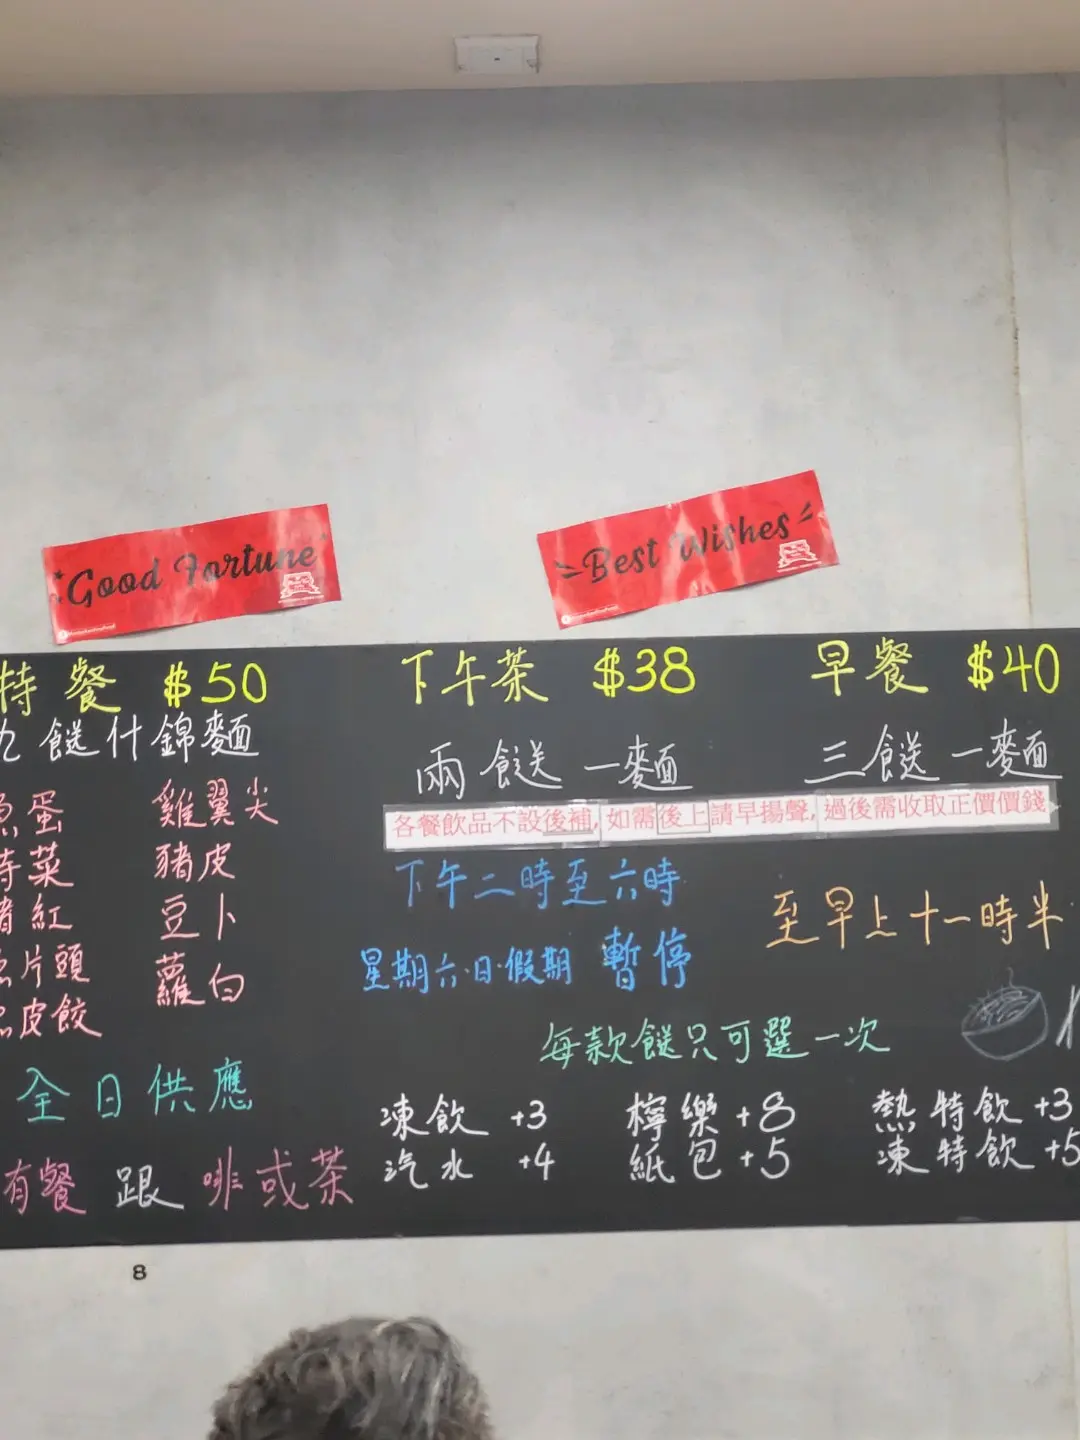 Good Fortune
Best Wishes
特餐 $50
九餸什錦麵
魚蛋 雞翼尖
時菜 豬皮
豬紅 豆卜
魚片頭 蘿白
魚皮餃
全日供應
有餐 跟 啡或茶
下午茶 $38
兩餸一麵
早餐 $40
三餸一麵
各餐飲品不設後補, 如需後上請早揚聲, 過後需收取正價價錢
下午二時至六時
星期六·日·假期 暫停
至早上十一時半
每款餸只可選一次
凍飲 +3 檸樂 +8 熱特飲 +3
汽水 +4 紙包 +5 凍特飲 +5
8